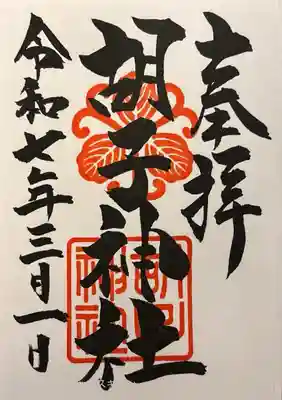 奉拝
胡子神社
令和七年三月一日